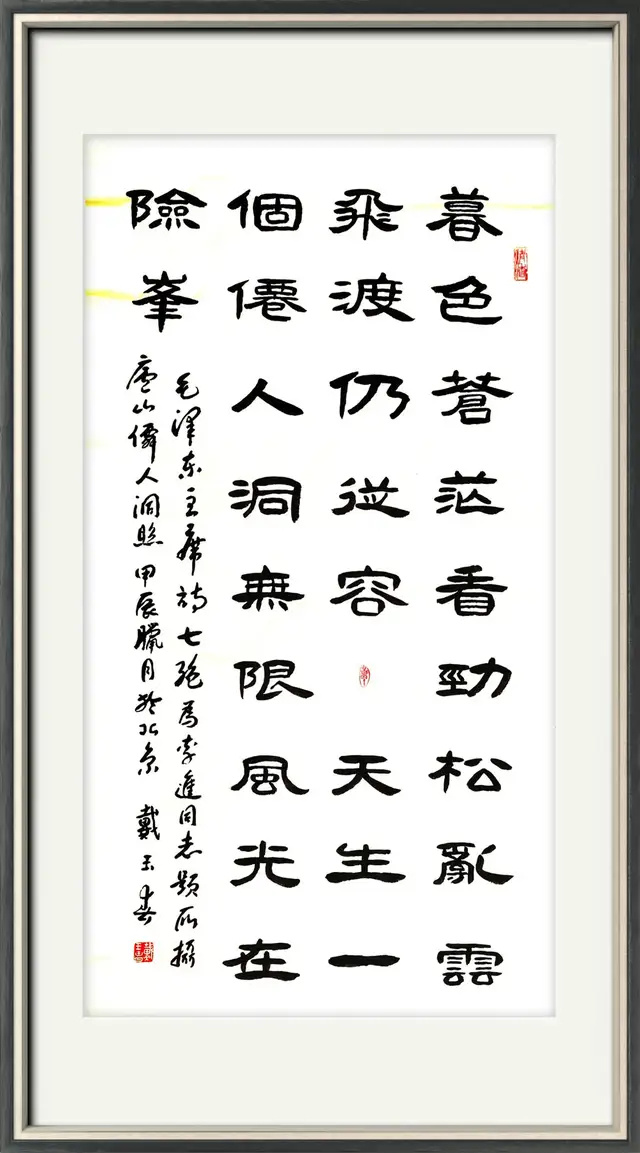 暮色蒼茫看勁松亂雲
飛渡仍從容 天生一
個僊人洞無限風光在
險峯
毛澤东主席詩七絕為李進同志題所攝
廬山僊人洞照 甲辰臘月於北京 戴玉